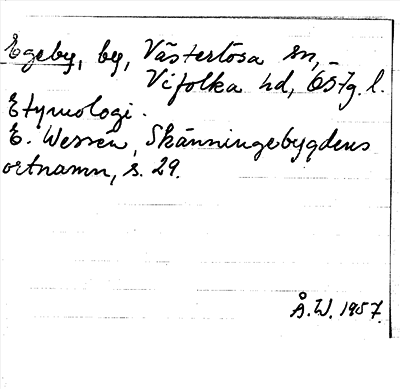 Egeby, by, Västerlösa sn,
Vifolka hd, Östg. l.
Etymologi.
E. Wessén, Skänningebygdens
ortnamn, s. 29.
Å.W. 1957.